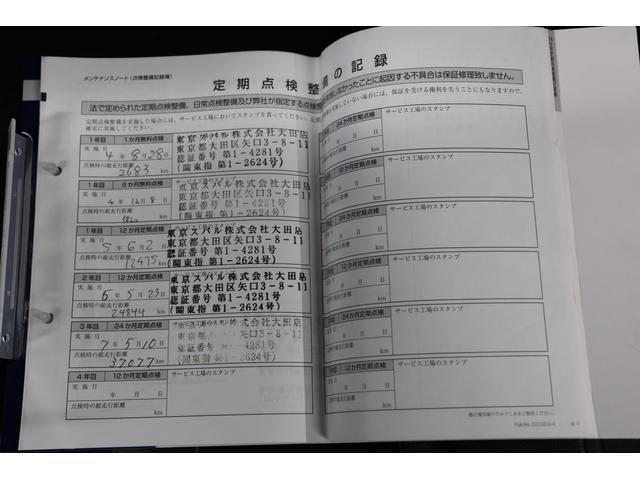 メンテナンスノート（点検整備記録簿）
定期点検整備の記録
法で定められた定期点検整備、日常点検整備及び弊社が指定する点検
しなかったことに起因する不具合は保証修理致しません。
定期点検整備を実施した場合には、サービス工場においてスタンプを貰ってください。
していない場合には、保証を受ける権利を失うことにもなりますので、
確実に実施してください。
1年目 1か月無料点検
実施日
4年8月28日
点検時の総走行距離
2683 km
東京スバル株式会社大田店
東京都大田区矢口3-8-11
認証番号 第1-4281号
(関東指 第1-2624号)
1年目 6か月無料点検
サービス工場のスタンプ
実施日
4年12月8日
点検時の総走行距離
km
東京スバル株式会社大田店
東京都大田区矢口3-8-11
認証番号 第1-4281号
(関東指 第1-2624号)
1年目 12か月定期点検
実施日
5年6月2日
点検時の総走行距離
12475 km
東京スバル株式会社大田店
東京都大田区矢口3-8-11
認証番号 第1-4281号
(関東指 第1-2624号)
2年目 12か月定期点検
実施日
6年5月23日
点検時の総走行距離
24844 km
東京スバル株式会社大田店
東京都大田区矢口3-8-11
認証番号 第1-4281号
(関東指 第1-2624号)
3年目 24か月定期点検
サービス工場のスタンプ
実施日
7年5月10日
点検時の総走行距離
37077 km
東京スバル株式会社大田店
東京都大田区矢口3-8-11
認証番号 第1-4281号
(関東指 第1-2624号)
4年目 12か月定期点検
サービス工場のスタンプ
実施日
年 月 日
点検時の総走行距離
km
24か月定期点検
サービス工場のスタンプ
年 月 日
km
12か月定期点検
サービス工場のスタンプ
年 月 日
km
24か月定期点検
サービス工場のスタンプ
年 月 日
km
12か月定期点検
サービス工場のスタンプ
年 月 日
km
サービス工場のスタンプ
年 月 日
km
12か月定期点検
サービス工場のスタンプ
年 月 日
km